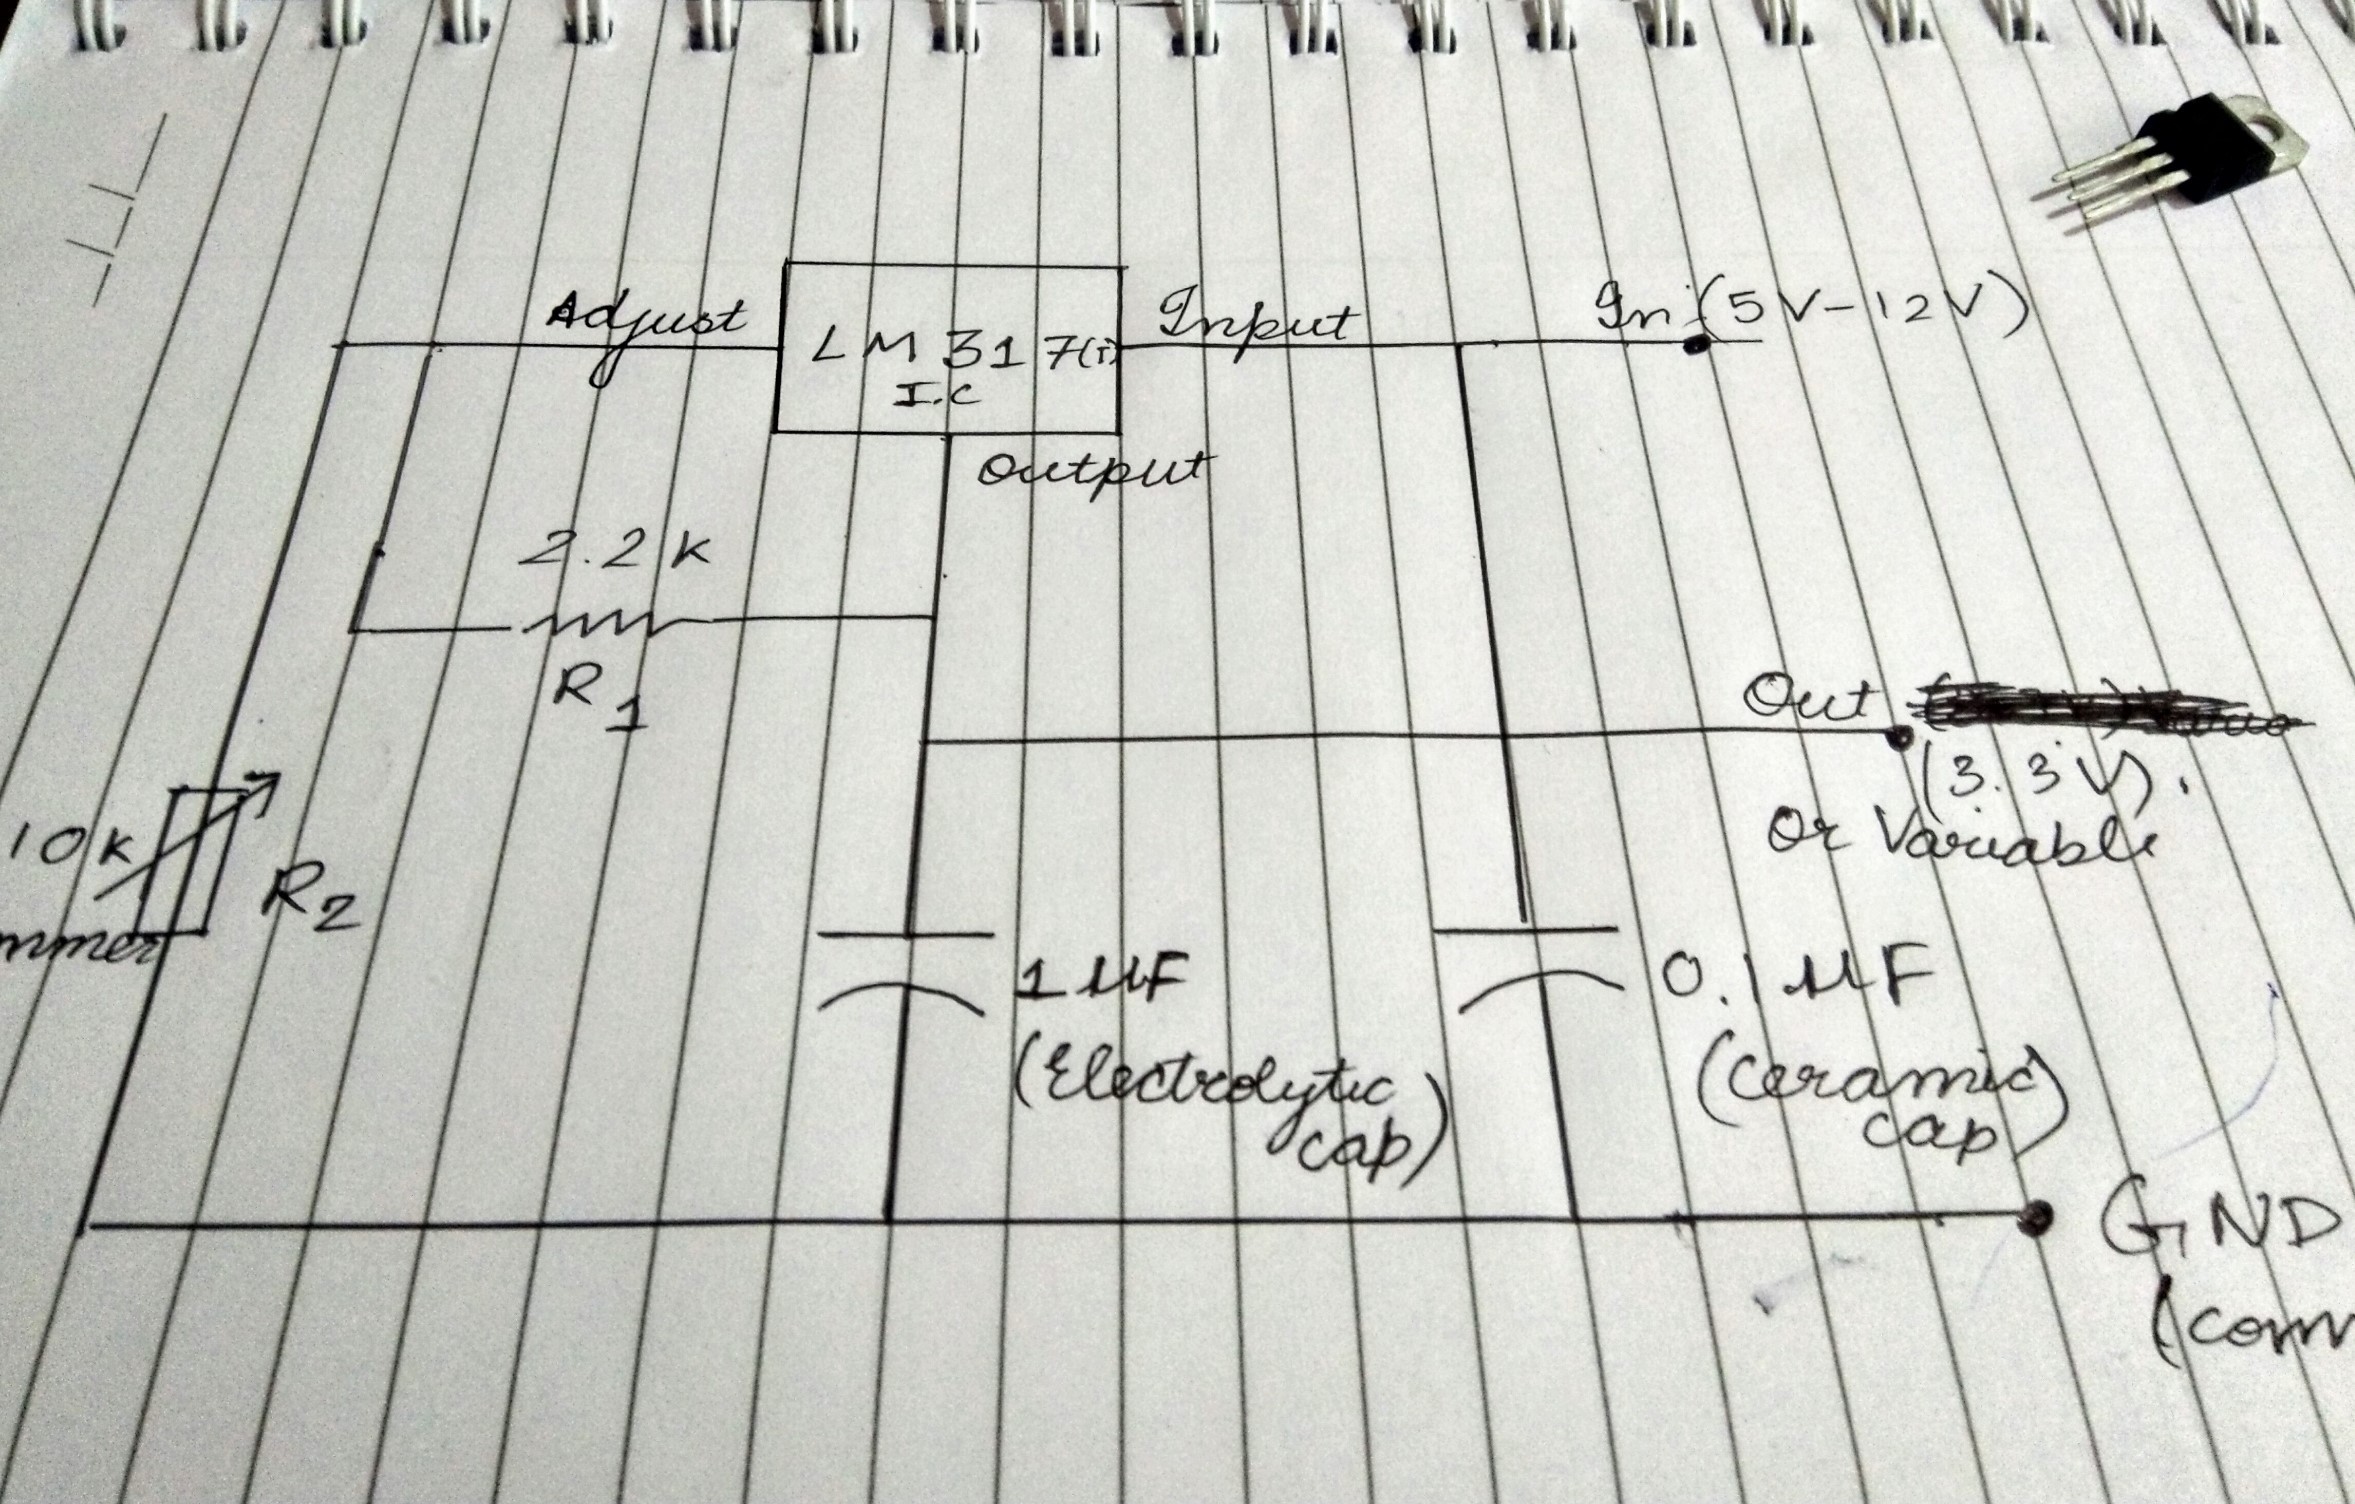 Adjust
LM317(T)
I.C
Input
In (5V-12V)
Output
2.2K
R1
Out
(3.3V).
Or Variable
10K
R2
mmer
1µF
(Electrolytic
cap)
0.1µF
(Ceramic
cap)
GND
(com